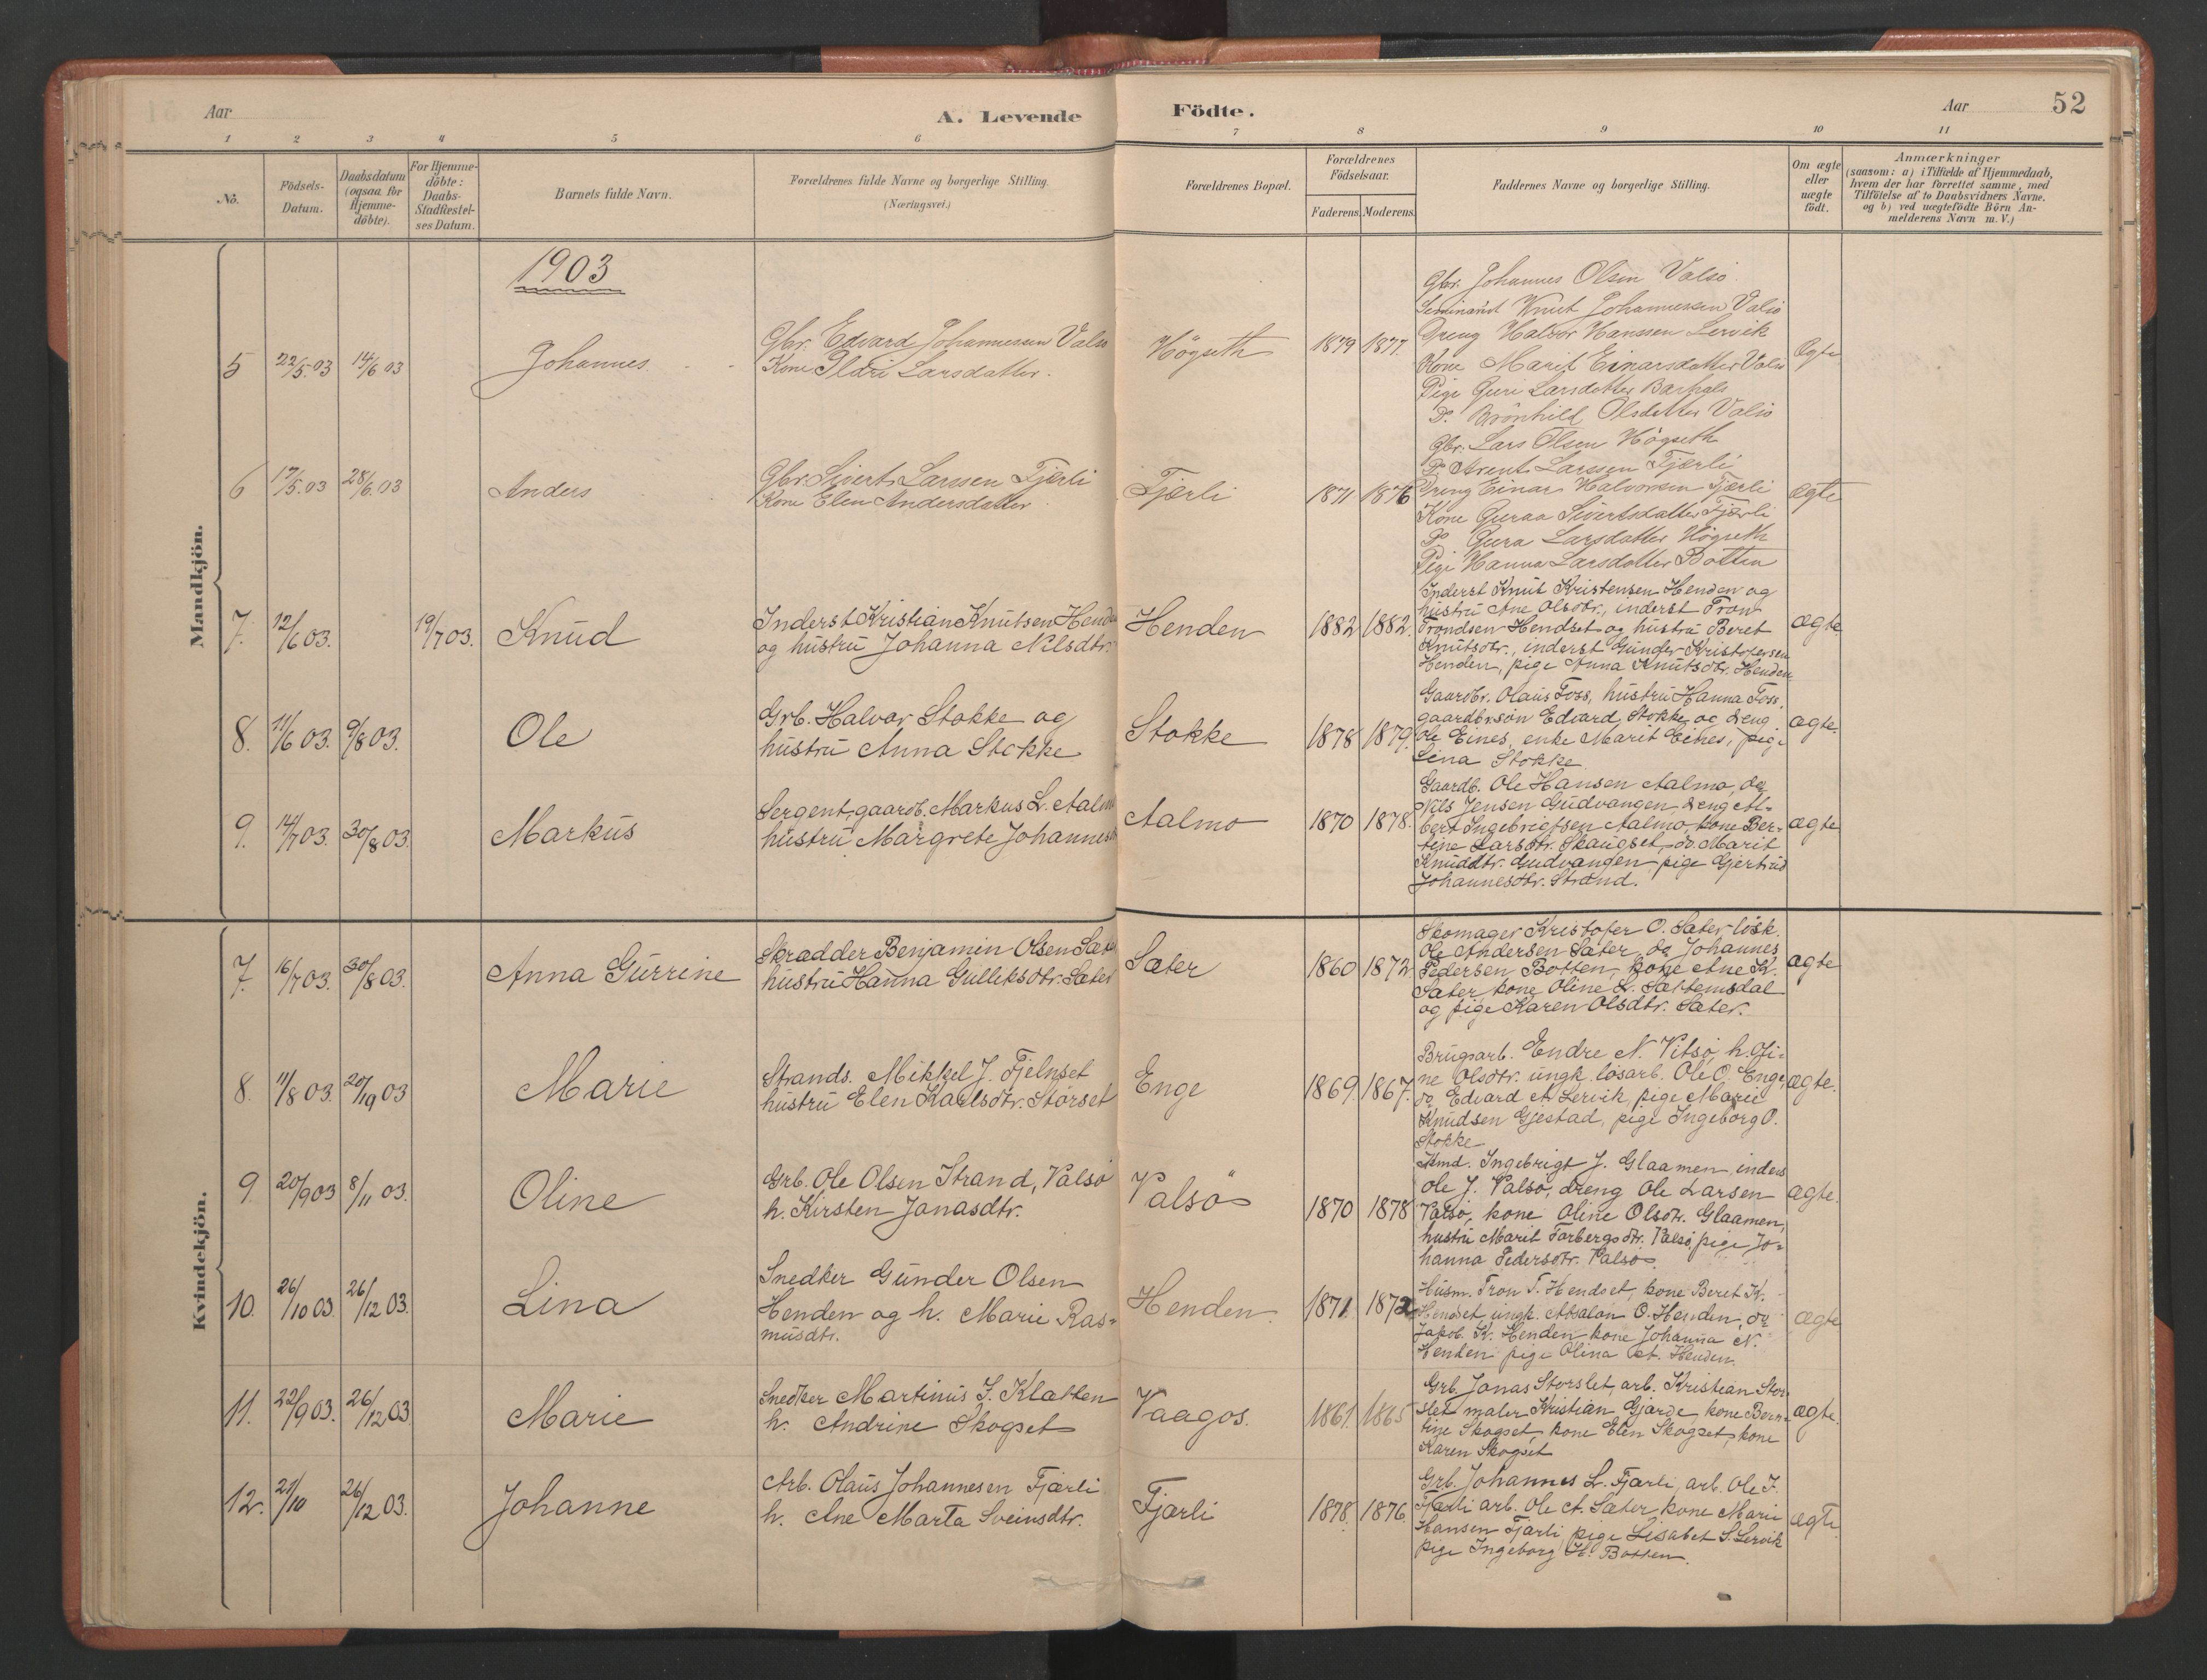 Aar
A. Levende Födte.
Aar 52
1 2 3 4 5 6 7 8 9 10 11
No.
Födsels-
Datum.
Daabsdatum
(ogsaa for
Hjemme-
döbte).
For Hjemme-
döbte:
Daabs-
Stadfæstel-
ses Datum.
Barnets fulde Navn.
Forældrenes fulde Navne og borgerlige Stilling.
(Næringsvei.)
Forældrenes Bopæl.
Forældrenes
Födselsaar.
Faderens. Moderens.
Faddernes Navne og borgerlige Stilling.
Om ægte
eller
uægte
födt.
Anmærkninger
(saasom: a) i Tilfælde af Hjemmedaab,
hvem der har forrettet samme, med
Tilföielse af to Daabsvidners Navne.
og b) ved uægtefödte Börn An-
melderens Navn m.V.)
Mandkjön.
1903
5 22/5.03 14/6 03 Johannes
Gbr. Edvard Johannessen Valsø
Kone Ildri Larsdatter.
Högseth 1879 1877.
Gbr. Johannes Olsen Valsö
Seminarist Knut Johannessen Valsö
Dreng Halvor Hanssen Lervik
Kone Marit Einarsdatter Valsö
Pige Guri Larsdatter
D. Brönhild Olsdatter Valsö
Ægte
6 17/5.03 28/6.03 Anders
Gbr. Sivert Larssen Fjærli
Kone Elen Andersdatter
Fjærli 1871 1876
Gbr. Lars Olsen Högseth
D. Arent Larssen Fjærli
Dreng Einar Halvorsen Fjærli
Kone Guraa Sivertsdatter Fjærli
D. Gura Larsdatter Högseth
Pige Hanna Larsdatter Botten
Ægte
7. 12/6 03. 19/7 03. Knud
Inderst Kristian Knutsen Henden
og hustru Johanna Nilsdtr.
Henden 1882 1882.
Inderst Knut Kristensen Henden og
hustru Ane Olsdtr., inderst Tron
Trondsen Hendset og hustru Beret
Knutsdtr., inderst Gunder Kristofersen
Henden, pige Anna Knutsdtr. Henden
ægte
8. 11/6 03. 9/8 03. Ole
Grb. Halvor Stokke og
hustru Anna Stokke
Stokke 1878 1879.
Gaardbr. Olaus Foss, hustru Hanna Foss,
gaardbrsøn Edvard Stokke og dreng
Ole Eines, enke Marit Eines, pige
Lina Stokke
ægte.
9. 14/7 03. 30/8 03. Markus
Sergent, gaardb. Markus L. Aalmo
hustru Margrete Johannesd
Aalmo 1870 1878.
Gaardb. Ole Hansen Aalmo, do
Nils Jensen Gudvangen, dreng Al-
bert Ingebrigtsen Aalmo, kone Ber-
tine Larsdtr. Skaugset, do. Marit
Knuddtr. Gudvangen, pige Gjertrud
Johannesdtr. Strand.
ægte
Kvindekjön.
7. 16/7 03. 30/8 03. Anna Gurrine
Skrædder Benjamin Olsen Sæter
hustru Hanna Gulleksdtr. Sæter
Sæter 1860 1872
Skomager Kristofer O. Sæter, løsk.
Ole Andersen Sæter, do Johannes
Pedersen Botten, kone Ane K.
Sæter, kone Oline L. Settemsdal
og pige Karen Olsdtr. Sæter.
ægte
8. 11/8 03. 20/19 03 Marie
Strands. Mikkel J. Fjelnset
hustru Elen Karlsdtr. Störset
Enge 1869. 1867.
Brugsarb. Endre N. Vitsø, h. Gji-
ne Olsdtr. ungk. løsarb. Ole O. Enge,
do Edvard A. Lervik, pige Marie
Knudsen Gjestad, pige Ingeborg O.
Stokke
ægte.
9. 20/9 03 8/11 03. Oline
Grb. Ole Olsen Strand, Valsø
h. Kirsten Jonasdtr.
Valsö 1870 1878
Kmd. Ingebrigt J. Glaamen, inders
Ole J. Valsø, dreng Ole Larsen
Valsø, kone Oline Olsdtr. Glaamen,
hustru Marit Torbergsdtr. Valsø, pige Jo-
hanna Pedersdtr. Valsø.
ægte.
10. 26/10 03. 26/12 03. Lina
Snedker Gunder Olsen
Henden og h. Marie Ras-
musdtr.
Henden. 1871. 1872
Husm. Tron T. Hendset, kone Beret K.
Hendset, ungk. Absalon O. Henden, do
Jakob K. Henden, kone Johanna N.
Henden, pige Olina A. Henden.
ægte
11. 22/9 03. 26/12 03. Marie
Snedker Martinus J. Klatten
h. Andrine Skogset
Vaagos. 1861. 1865
Grb. Jonas Storslet, arb. Kristian Stor-
slet, maler Kristian Gjærde, kone Bern-
tine Skogset, kone Elen Skogset, kone
Karen Skogset
ægte.
12. 21/10 26/12 03. Johanne
Arb. Olaus Johannesen Fjærli
h. Ane Marta Sveinsdtr.
Fjærli 1878. 1876.
Grb. Johannes L. Fjærli, arb. Ole J.
Fjærli, arb. Ole A. Sæter, kone Marie
Hansen Fjærli, pige Lisabet S. Lervik
pige Ingeborg H. Botten.
ægte.